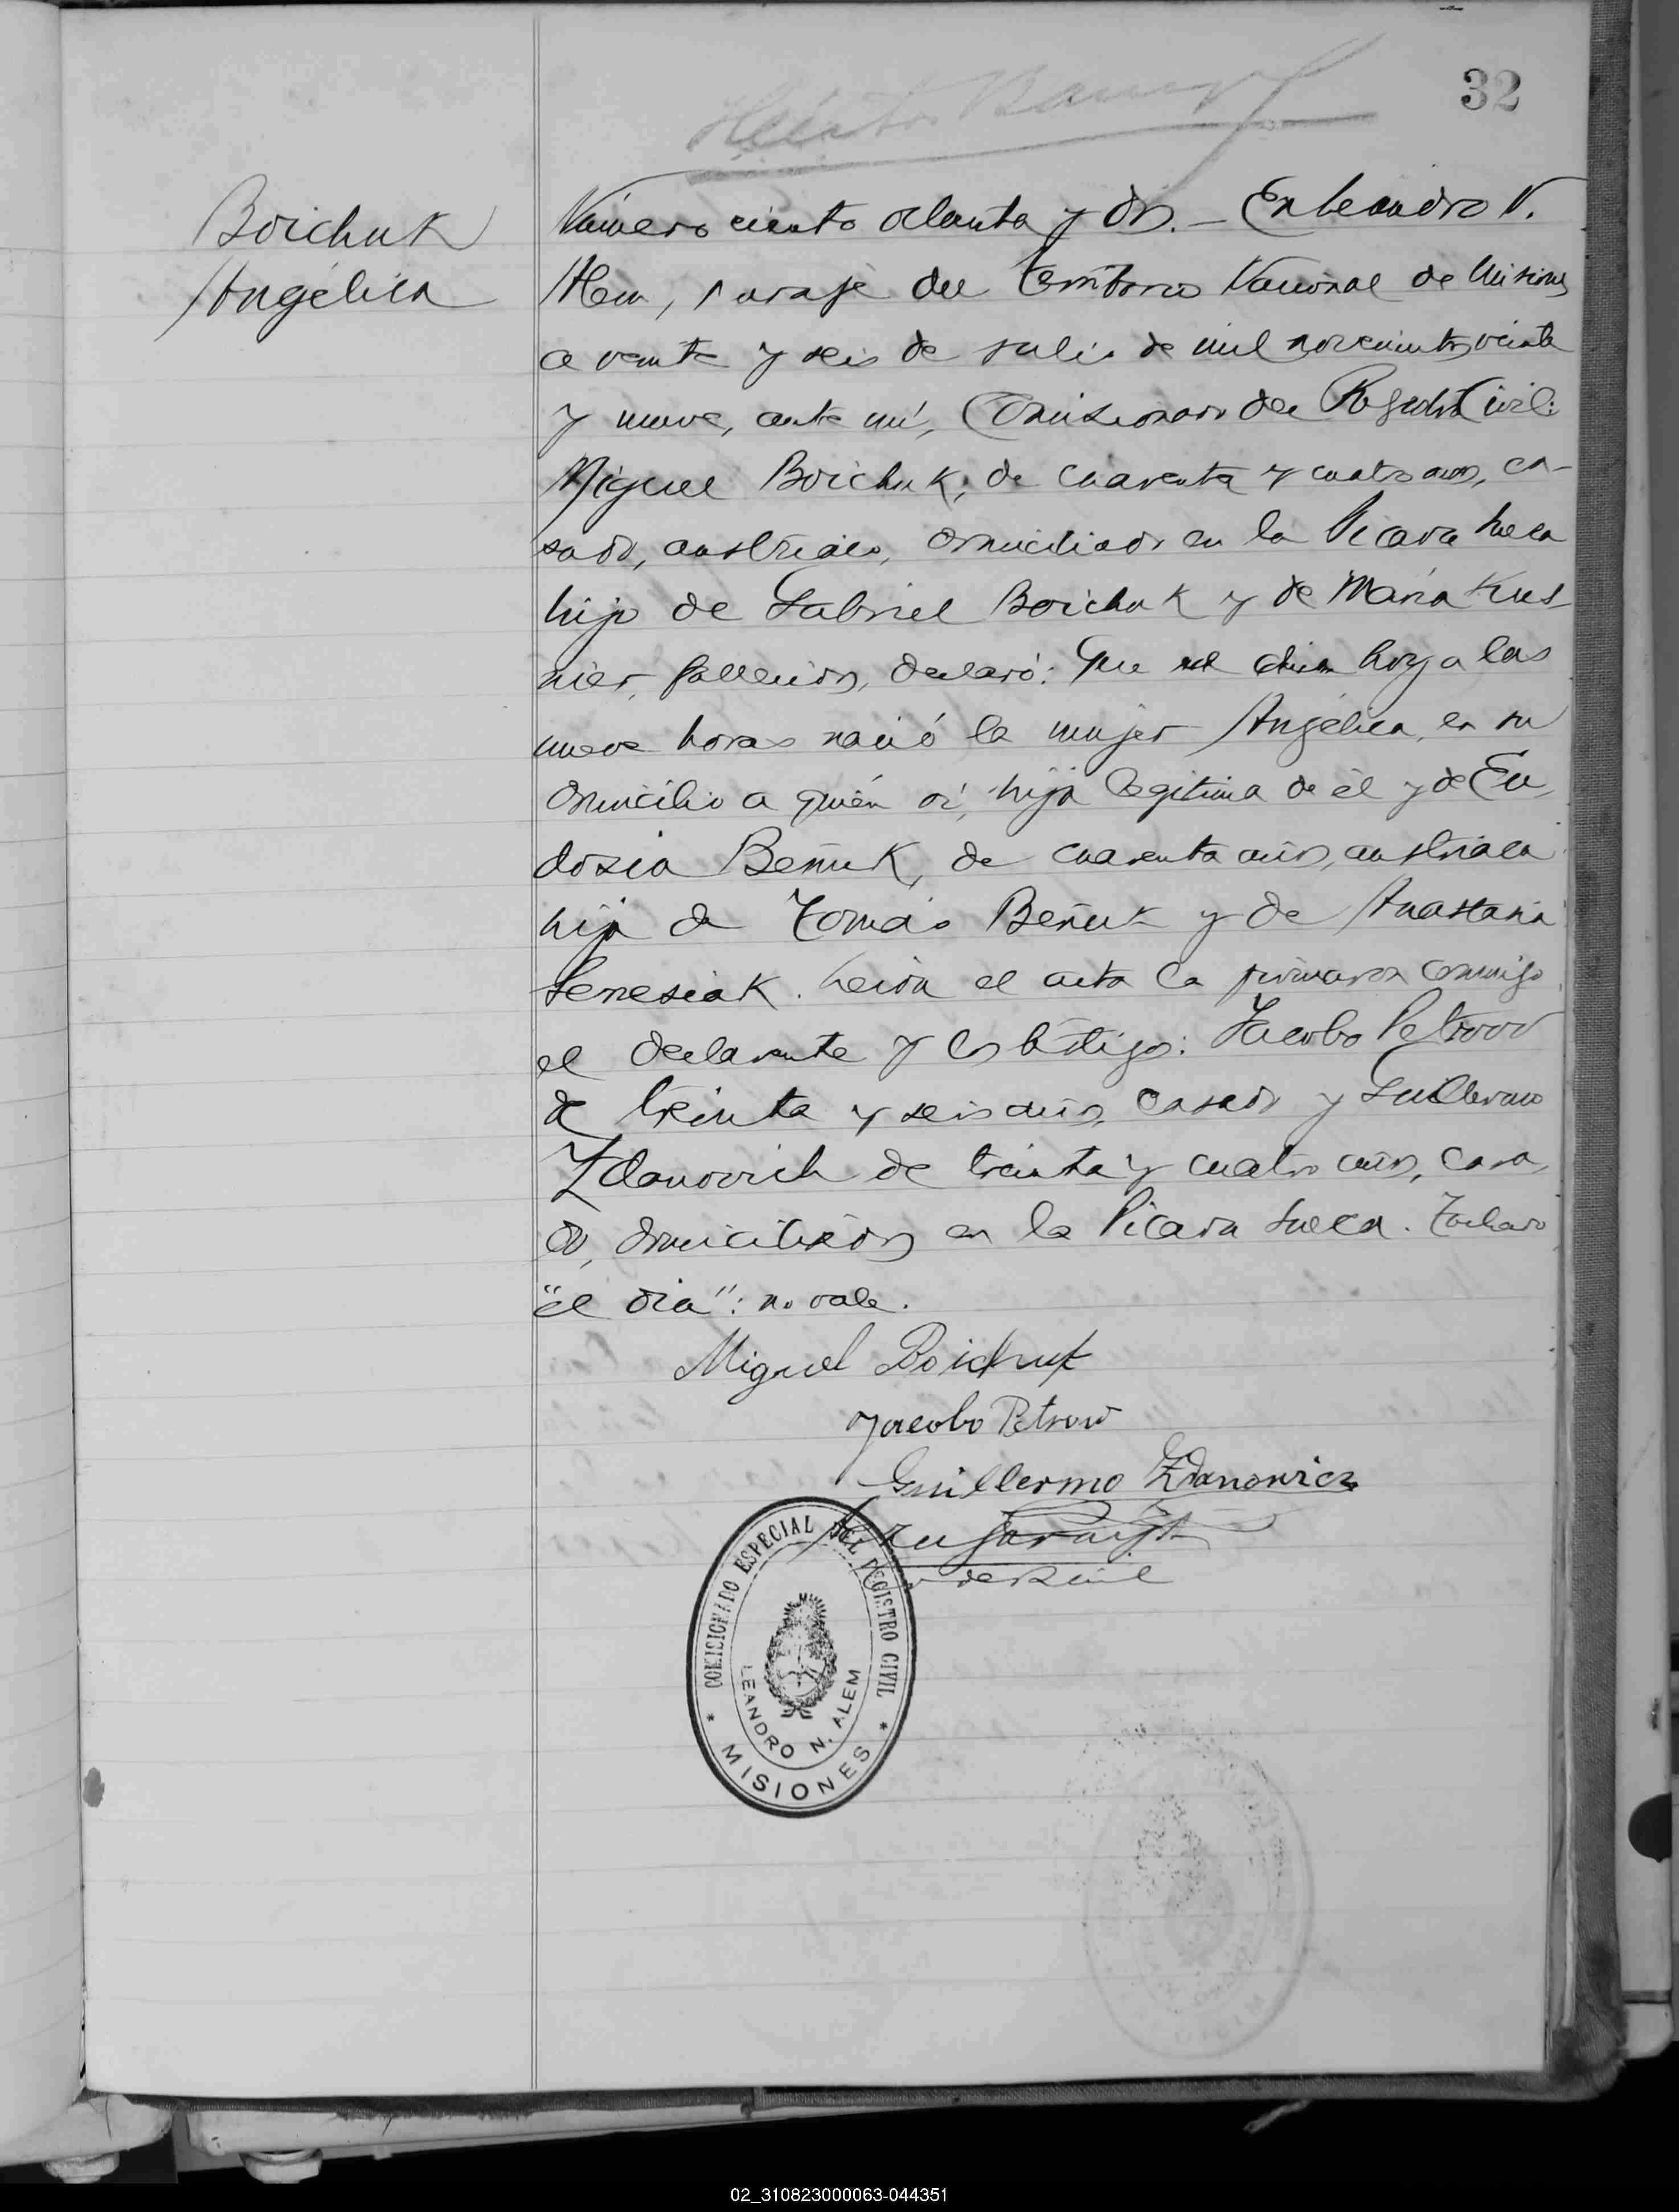 32
Boichuk
Angélica
Número ciento ochenta y dos. – En Leandro N.
Alem, paraje del Territorio Nacional de Misiones
a veinte y seis de Julio de mil novecientos veinte
y nueve, ante mí, Comisionado del Registro Civil:
Miguel Boichuk, de cuarenta y cuatro años, ca-
sado, austriaco, domiciliado en la Picada Sueca
hijo de Gabriel Boichuk y de María Kus-
nier, fallecidos, declaró: Que el dia hoy a las
nueve horas nació la mujer Angélica, en su
domicilio a quién ví, hija legitima de él y de Eu-
dosia Beñuk, de cuarenta años, austriaca
hija de Tomás Beñuk y de Anastasia
Semesiak. Leida el acta la firmaron conmigo
el declarante y los testigos: Jacobo Petrow
de treinta y seis años, casado y Guillermo
Zdanovich de treinta y cuatro años, casa-
do, domiciliados en la Picada Sueca. Tachado
"el dia": no vale.
Miguel Boichuk
Jacobo Petrow
Guillermo Zdanowicz
COMISIONADO ESPECIAL DEL REGISTRO CIVIL
LEANDRO N. ALEM
* MISIONES *
02_310823000063-044351